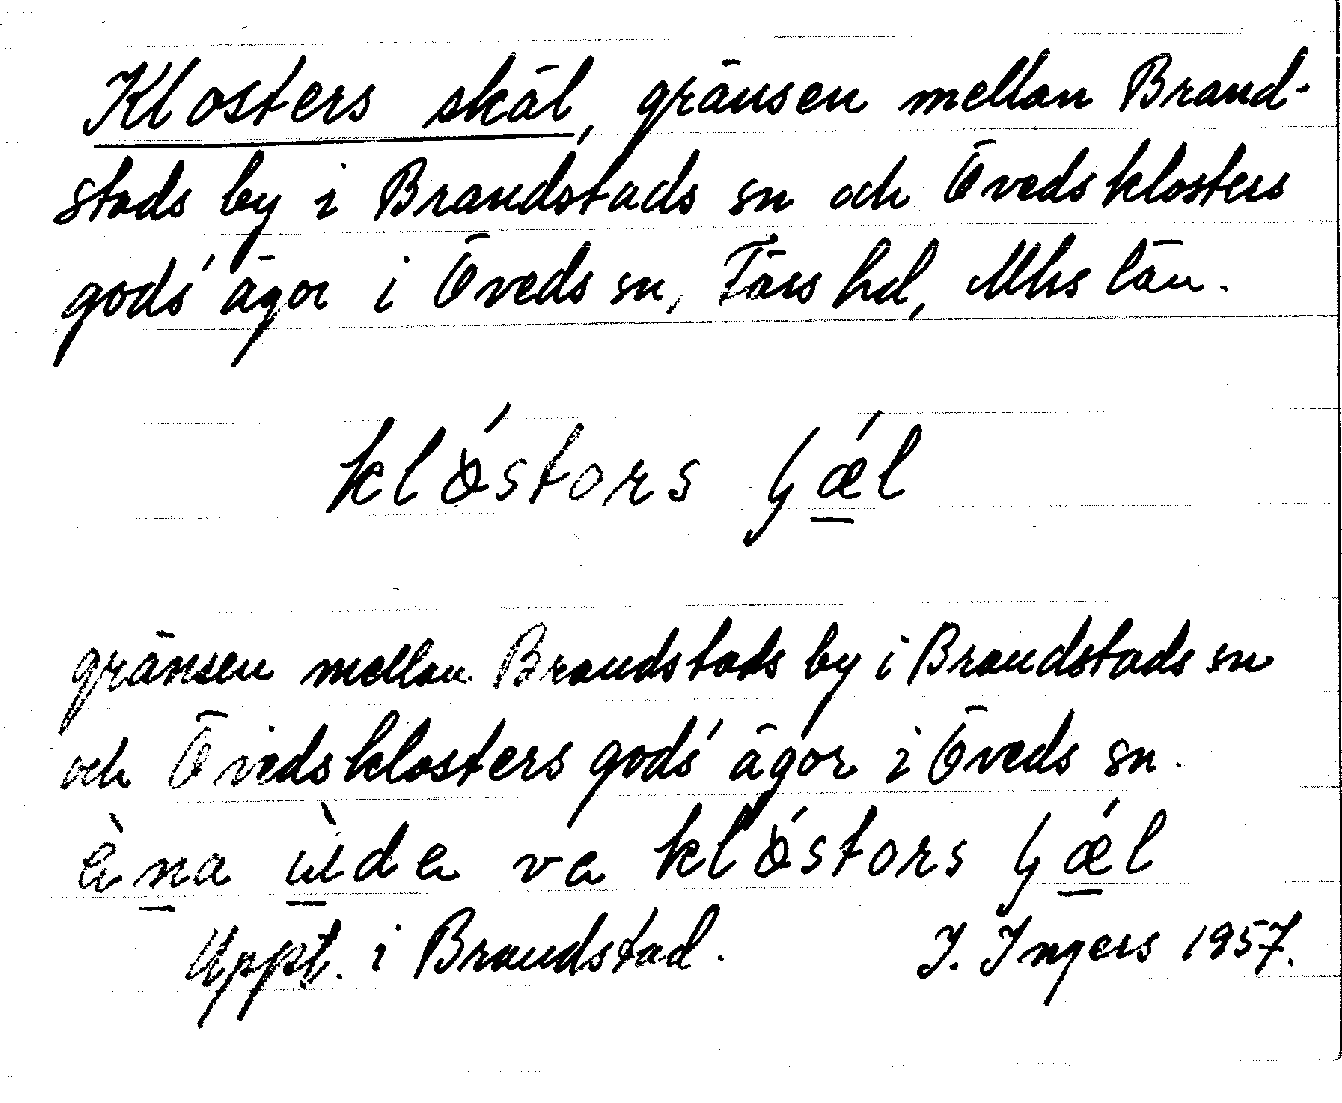 Klosters skäl, gränsen mellan Brand-
stads by i Brandstads sn och Övedsklosters
gods' ägor i Öveds sn, Färs hd, Mhs län.
klǿstors ɧǽl
gränsen mellan Brandstads by i Brandstads sn
och Övedsklosters gods' ägor i Öveds sn.
va klǿstors ɧǽl
Uppt. i Brandstad. I. Ingers 1957.